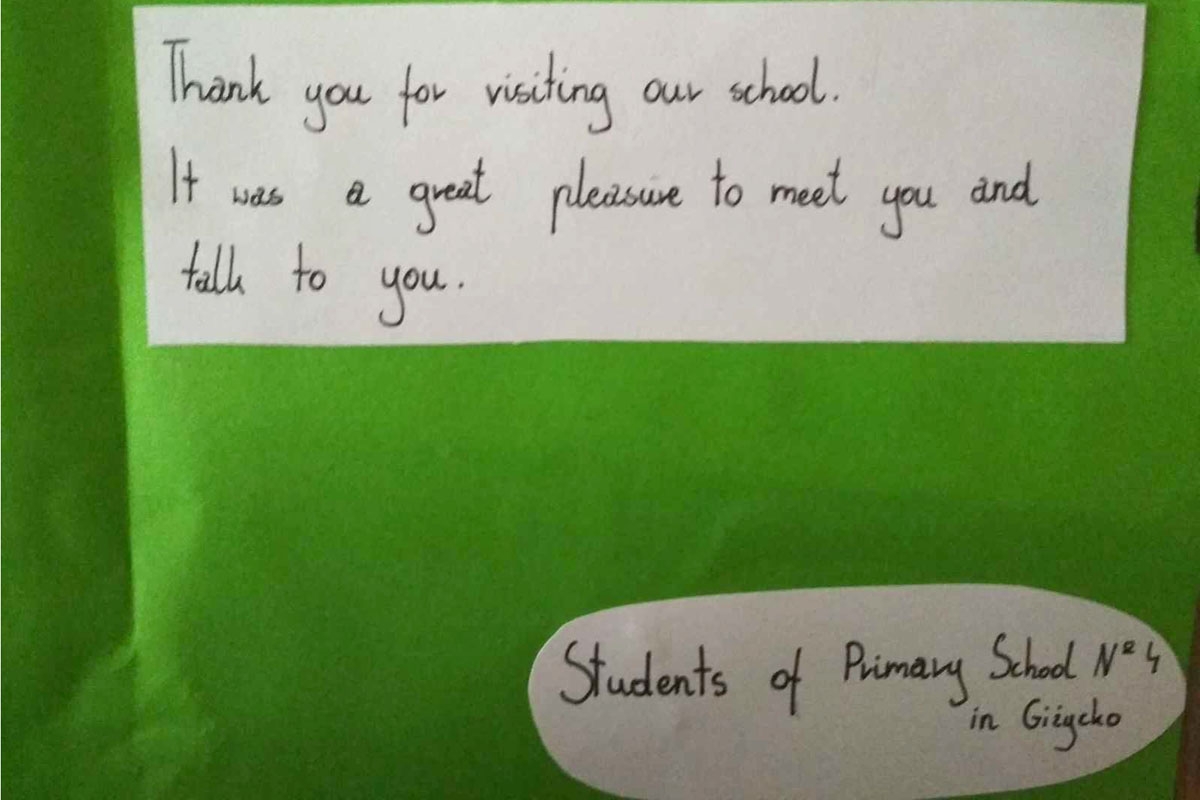 Thank you for visiting our school.
It was a great pleasure to meet you and
talk to you.
Students of Primary School Nº 4
in Giżycko